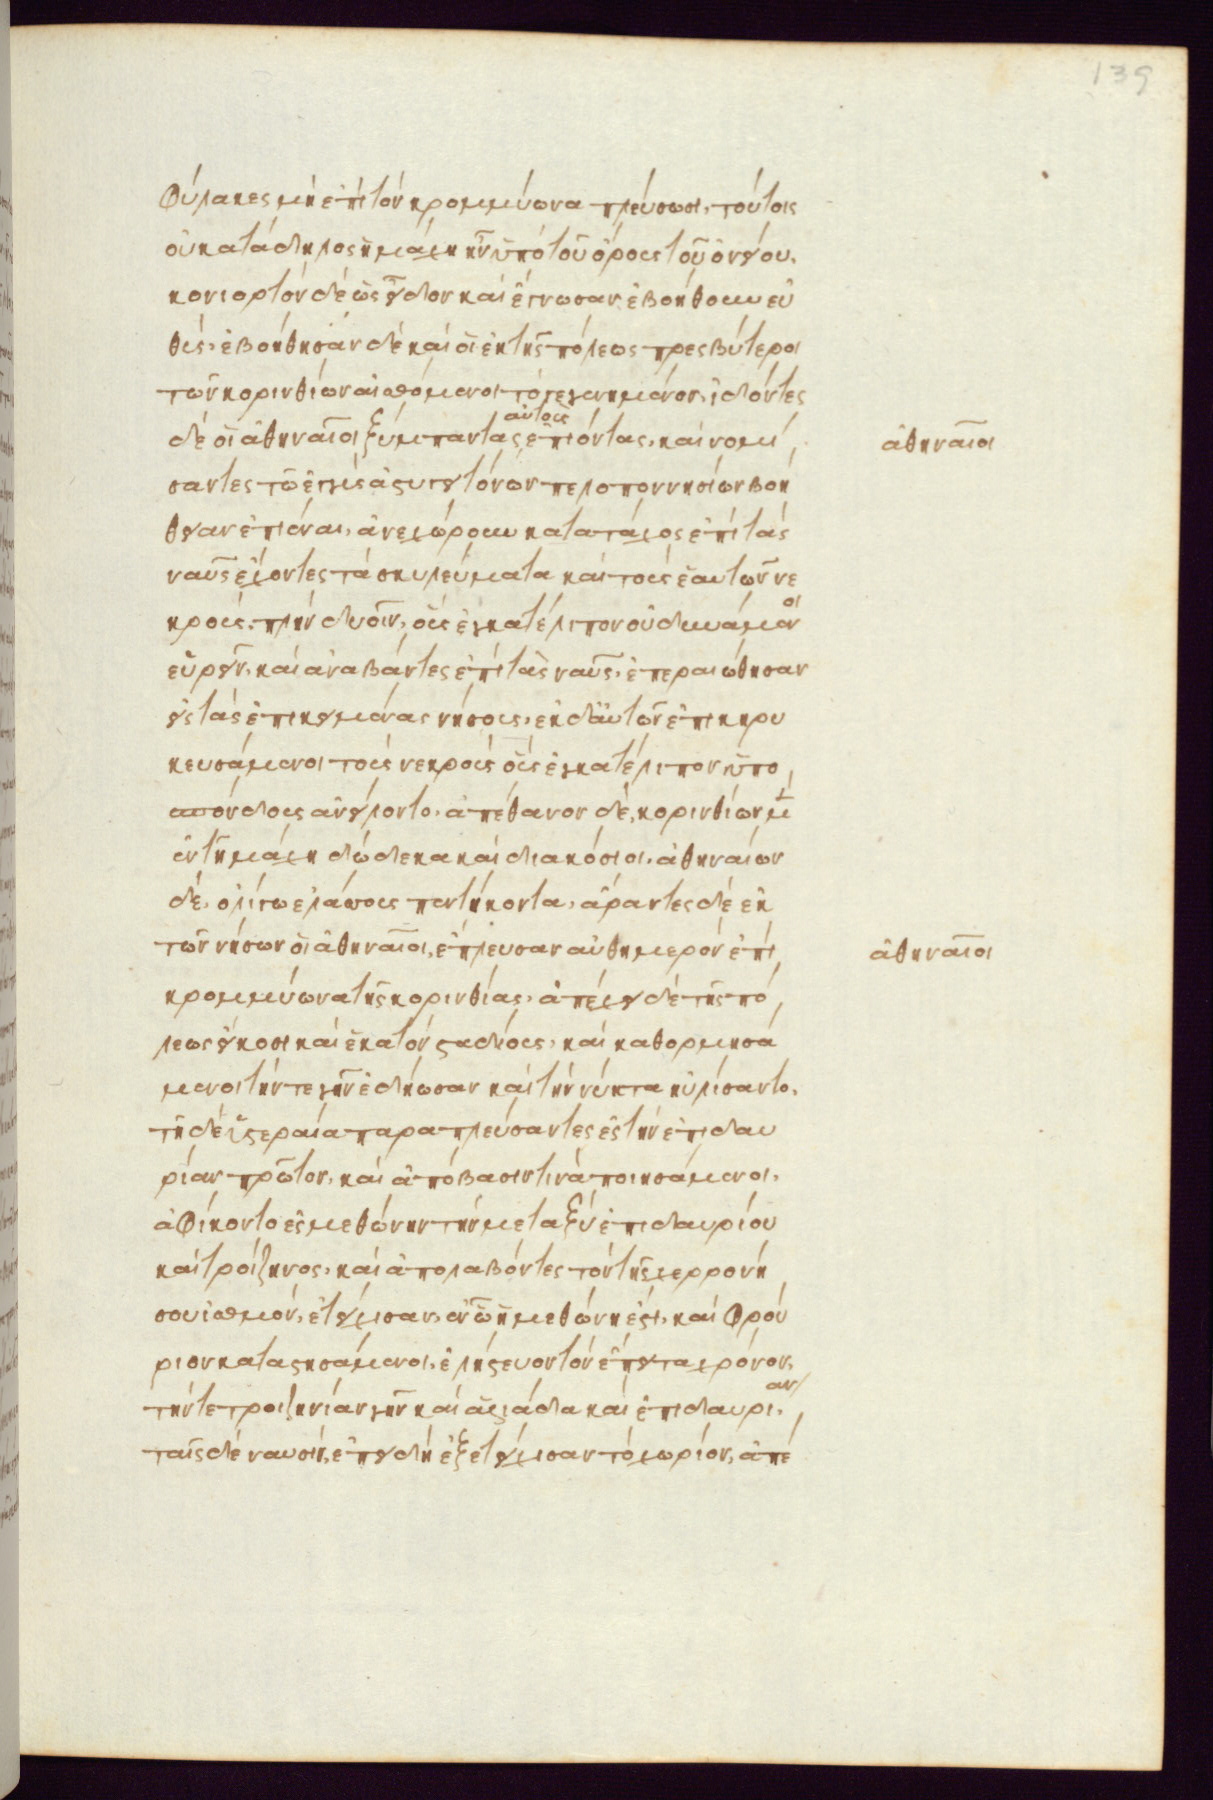 139
φύλακες μὴ ἐπὶ τὸν κρομμύωνα πλεύσωσι, τούτοις
οὐ κατάδηλος ἡ μάχη ἦν ὑπὸ τοῦ ὄρους τοῦ ὀνείου.
κονιορτὸν δὲ ὡς εἶδον καὶ ἔγνωσαν, ἐβοήθουν εὐ
θύς. ἐβοήθησαν δὲ καὶ οἱ ἐκ τῆς πόλεως πρεσβύτεροι
τῶν κορινθίων αἰσθόμενοι τὸ γεγενημένον. ἰδόντες
δὲ οἱ ἀθηναῖοι ξύμπαντας αὐτοὺς ἐπιόντας, καὶ νομί
ἀθηναῖοι
σαντες τῶν ἐγγὺς ἀστυγειτόνων πελοποννησίων βοή
θειαν ἐπιέναι, ἀνεχώρουν κατατάχος ἐπὶ τὰς
ναῦς ἔχοντες τὰ σκυλεύματα καὶ τοὺς ἑαυτῶν νε
κρούς. πλὴν δυοῖν, οὓς ἐγκατέλιπον οὐ δυνάμενοι
εὑρεῖν. καὶ ἀναβάντες ἐπὶ τὰς ναῦς, ἐπεραιώθησαν
εἰς τὰς ἐπικειμένας νήσους, ἐκ δ' αὐτῶν ἐπικηρυ
κευσάμενοι τοὺς νεκροὺς οὓς ἐγκατέλιπον ὑπο
σπόνδους ἀνείλοντο. ἀπέθανον δὲ, κορινθίων μὲν
ἐν τῇ μάχῃ δώδεκα καὶ διακόσιοι. ἀθηναίων
δὲ, ὀλίγῳ ἐλάσσους πεντήκοντα. ἄραντες δὲ ἐκ
τῶν νήσων οἱ ἀθηναῖοι, ἔπλευσαν αὐθημερὸν ἐπὶ
ἀθηναῖοι
κρομμύωνα τῆς κορινθίας. ἀπέχει δὲ τῆς πό
λεως εἴκοσι καὶ ἑκατὸν σταδίους. καὶ καθορμησά
μενοι τήν τε γῆν ἐδῄωσαν καὶ τὴν νύκτα ηὐλίσαντο.
τῇ δὲ ὑστεραίᾳ παραπλεύσαντες ἐς τὴν ἐπιδαυ
ρίαν πρῶτον, καὶ ἀπόβασιν τινὰ ποιησάμενοι.
ἀφίκοντο ἐς μεθώνην τὴν μεταξὺ ἐπιδαυρίου
καὶ τροίζηνος, καὶ ἀπολαβόντες τὸν τῆς χερρονή
σου ἰσθμὸν, ἐτείχισαν, ἐν ᾧ ἡ μεθώνη ἐστι. καὶ φρού
ριον καταστησάμενοι, ἐλῄστευον τὸν ἔπειτα χρόνον,
τήν τε τροιζηνίαν γῆν καὶ ἁλιάδα καὶ ἐπιδαυρίαν.
ταῖς δὲ ναυσὶν, ἐπειδὴ ἐξετείχισαν τὸ χωρίον, ἀπέ